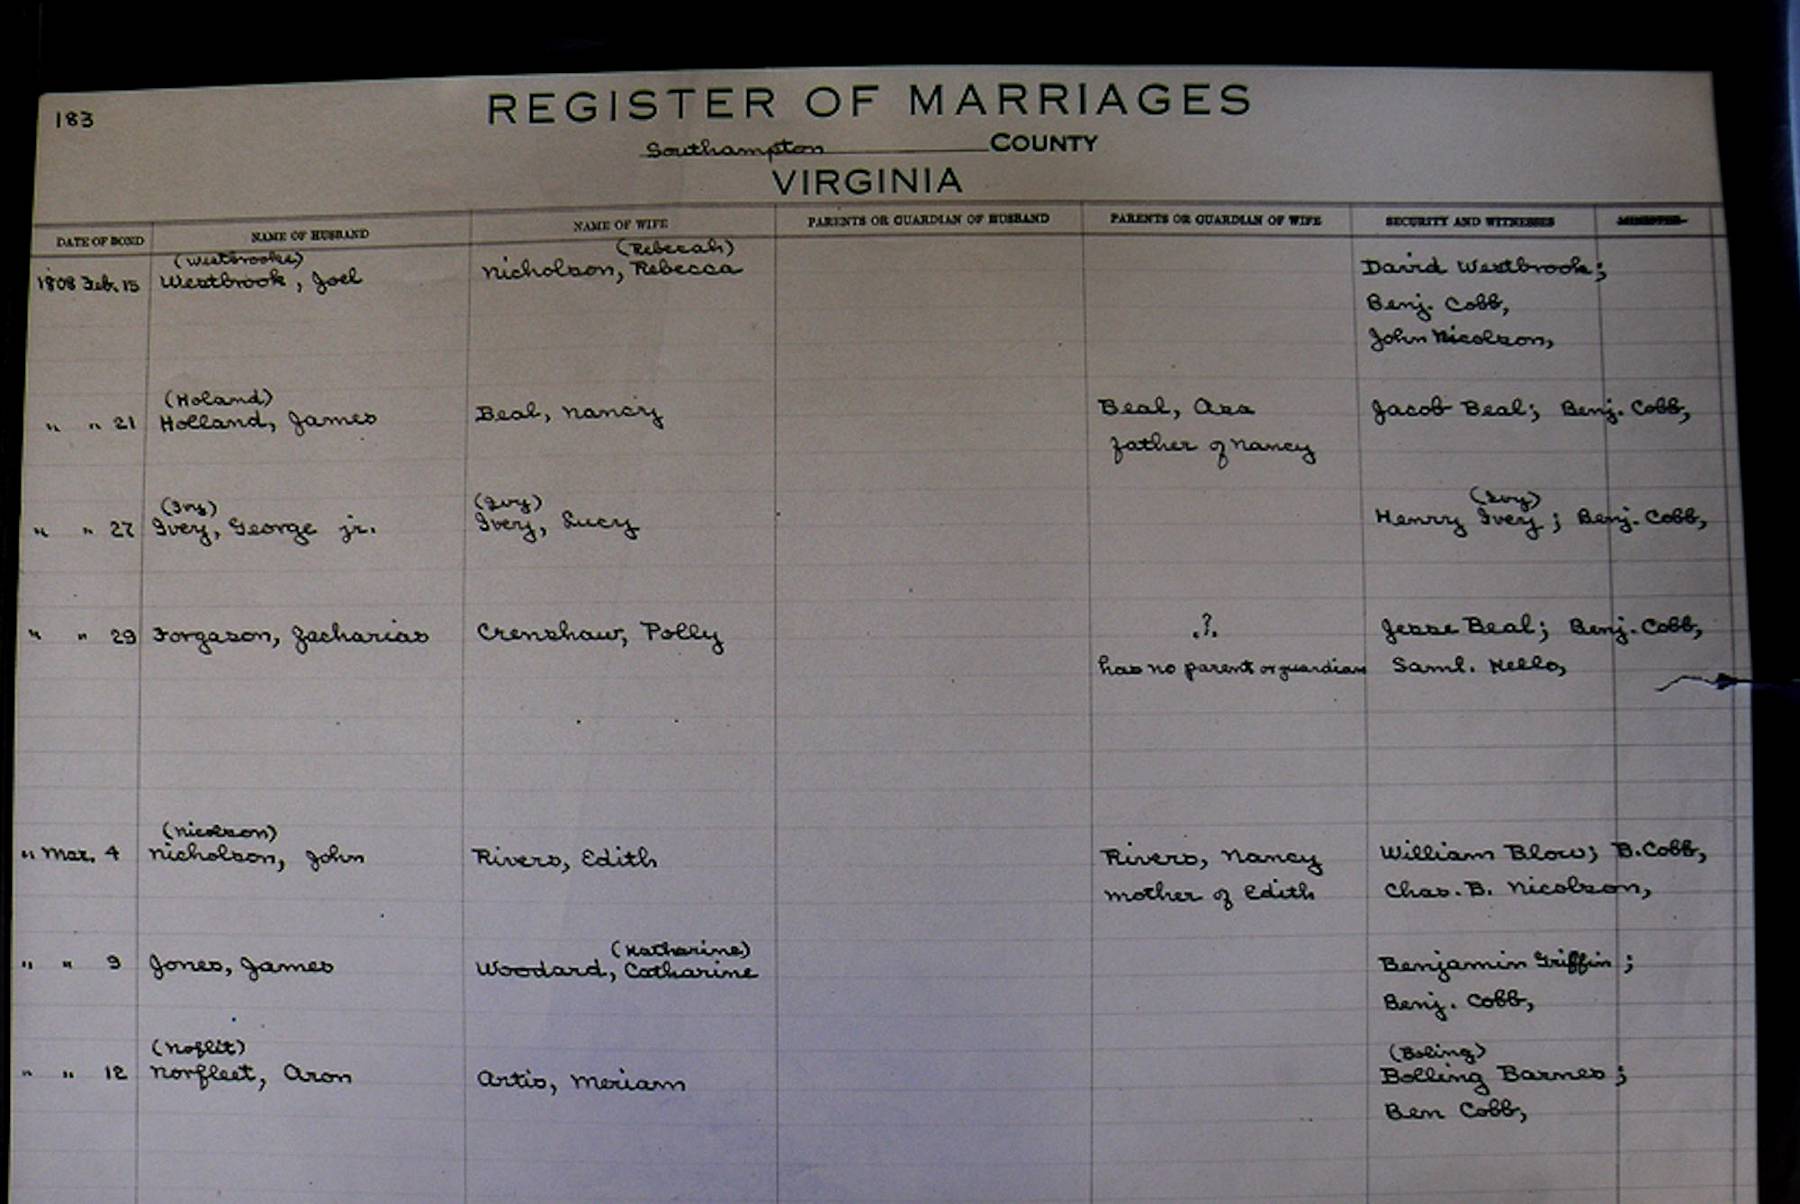 183
REGISTER OF MARRIAGES
Southampton COUNTY
VIRGINIA
DATE OF BOND NAME OF HUSBAND NAME OF WIFE PARENTS OR GUARDIAN OF HUSBAND PARENTS OR GUARDIAN OF WIFE SECURITY AND WITNESSES MINISTER
(Westbrooke) (Rebecah)
1808 Feb. 15 Westbrook, Joel Nicholson, Rebecca David Westbrook;
Benj. Cobb,
John Nicolson,
(Holand)
" " 21 Holland, James Beal, Nancy Beal, Asa Jacob Beal; Benj. Cobb,
father of Nancy
(Ivy) (Ivy) (Ivy)
" " 27 Ivey, George jr. Ivey, Lucy Henry Ivey; Benj. Cobb,
" " 29 Forgason, Zacharias Crenshaw, Polly .?. Jesse Beal; Benj. Cobb,
has no parent or guardian Saml. Kello,
(Nicolson)
" Mar. 4 Nicholson, John Rivers, Edith Rivers, Nancy William Blow; B. Cobb,
mother of Edith Chas. B. Nicolson,
(Katharine)
" " 9 Jones, James Woodard, Catharine Benjamin Griffin;
Benj. Cobb,
(Noflit) (Boling)
" " 12 Norfleet, Aron Artis, Meriam Bolling Barnes;
Ben Cobb,